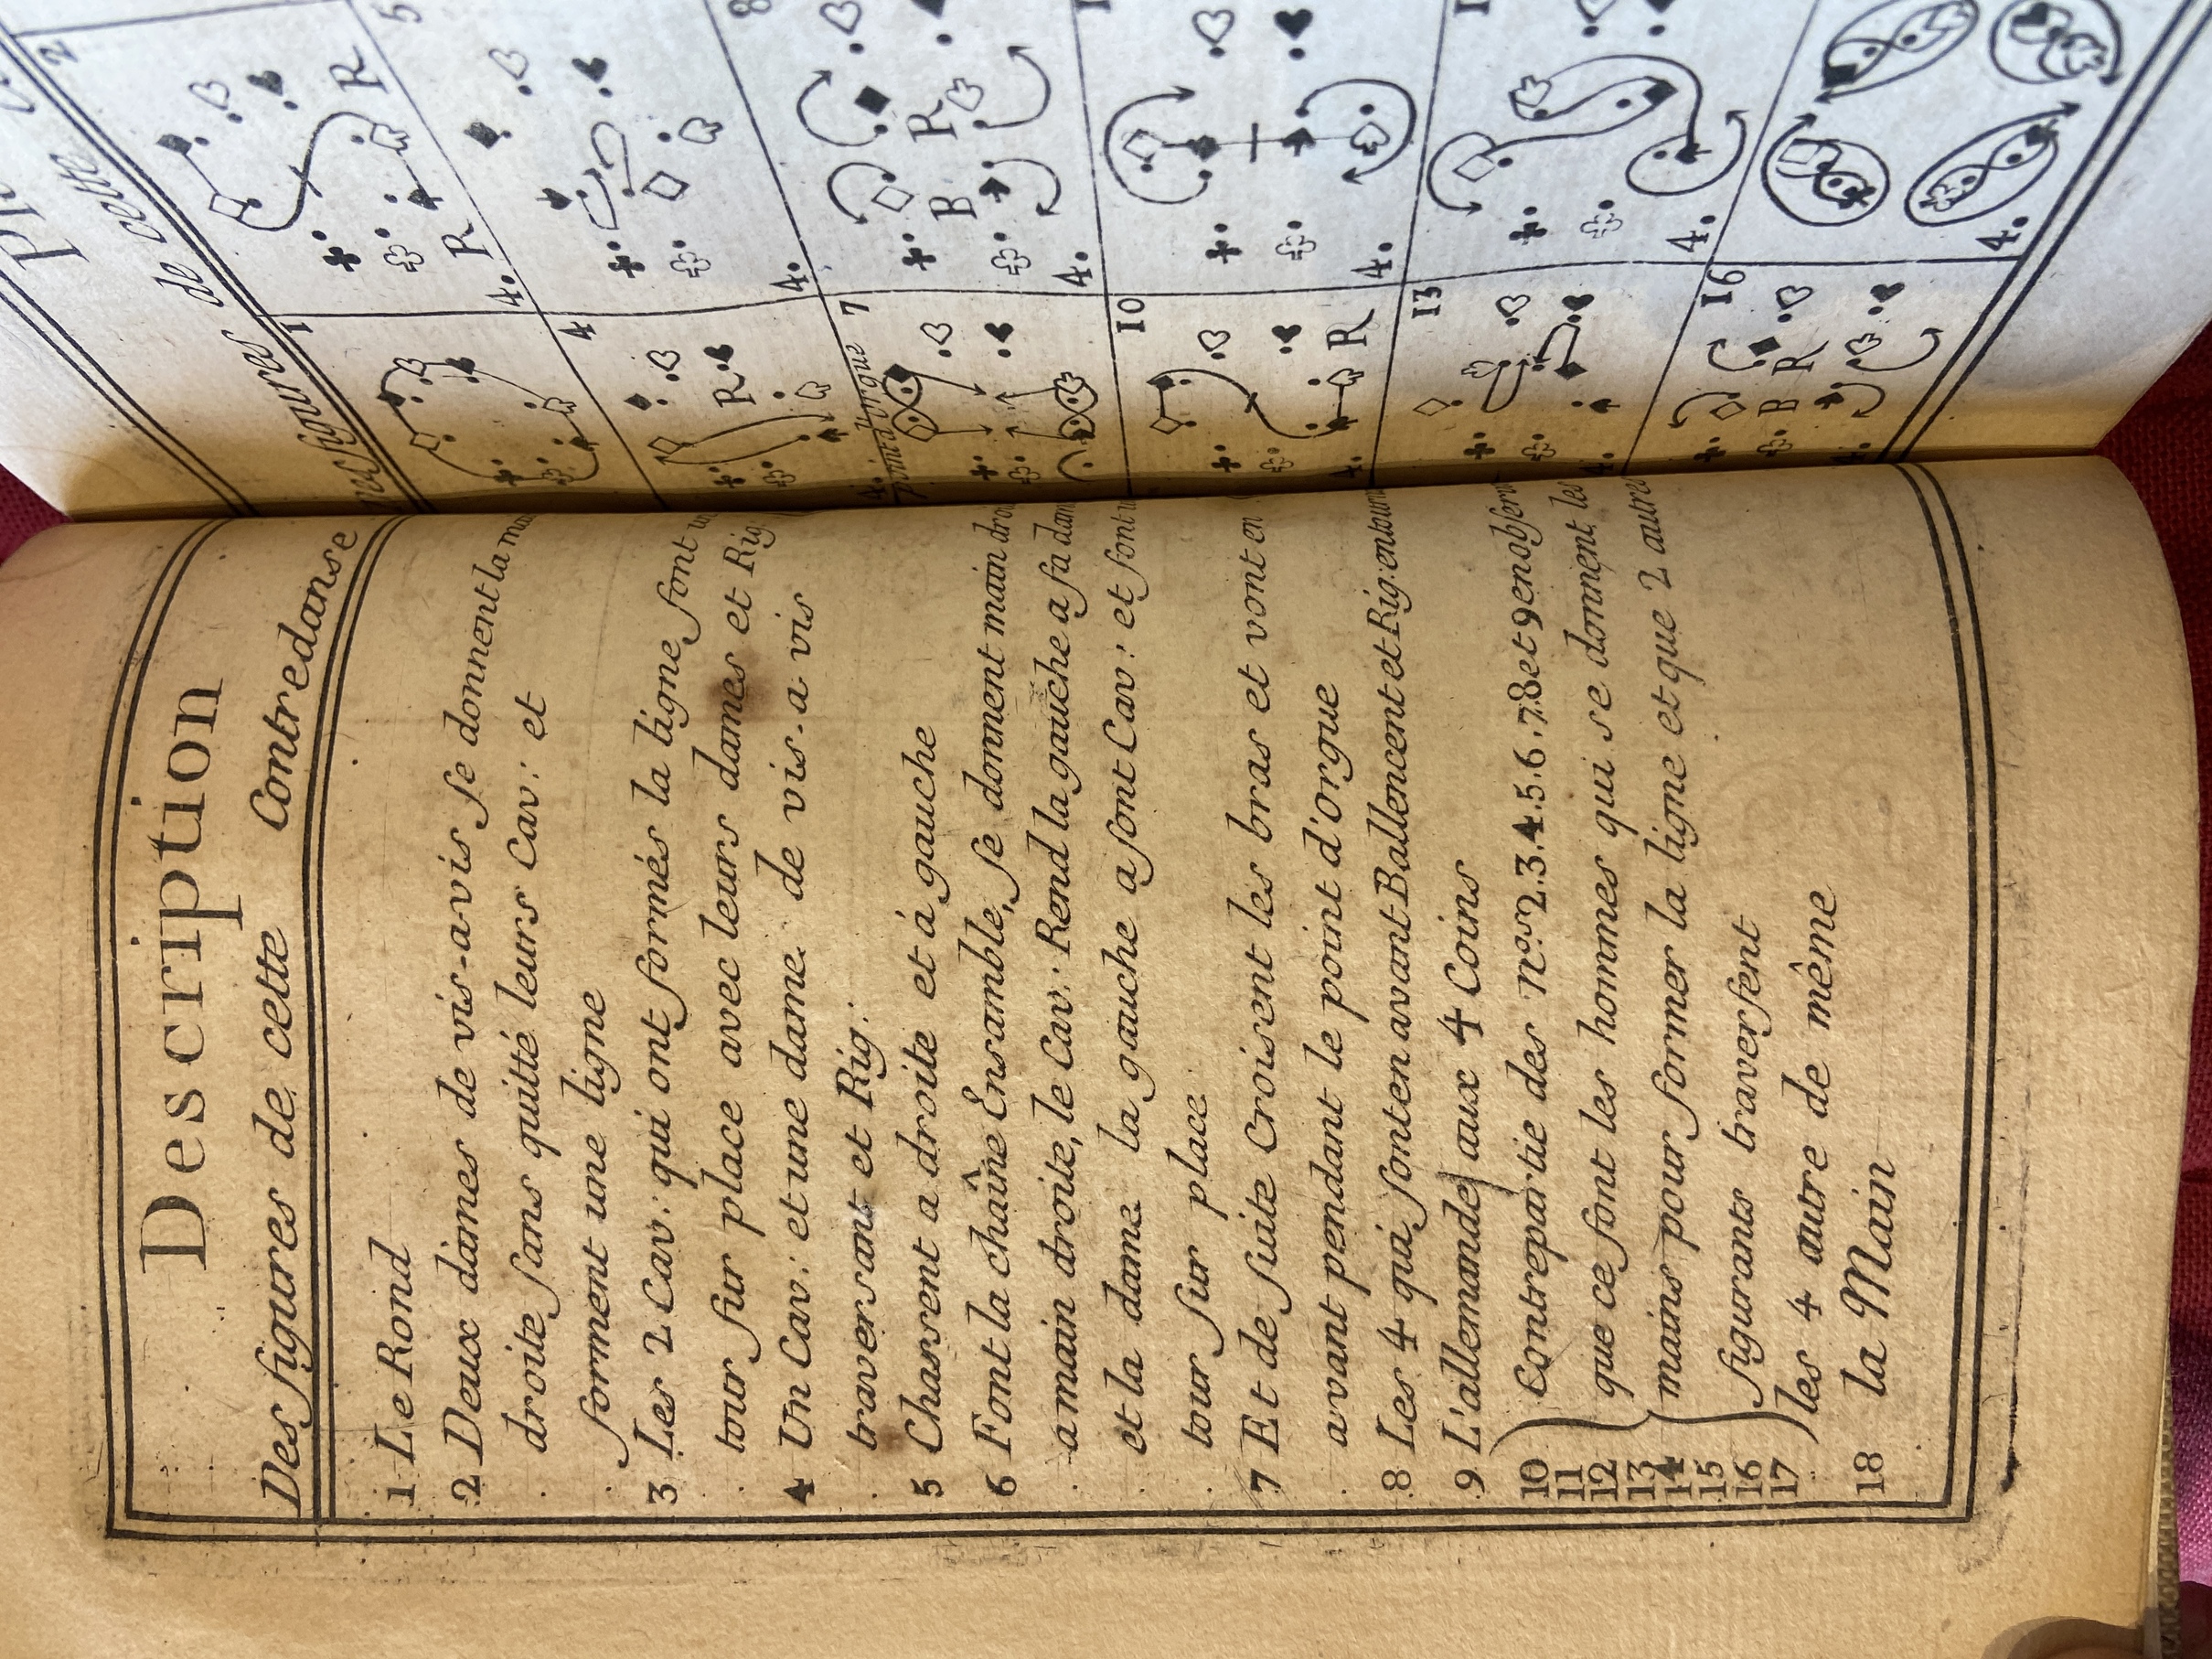 Description
Des figures de cette Contredanse
1 Le Rond
2 Deux dames de vis-a-vis se donnent la
droite sans quitté leurs Cav: et
forment une ligne
3 Les 2 Cav: qui ont formés la ligne font
tour sur place avec leurs dames et Rig
4 Un Cav: et une dame de vis-a vis
traversant et Rig:
5 Chassent a droite et á gauche
6 Font la chaîne Ensamble, se donnent main
a main droite, le Cav: Rend la gauche a sa
et la dame la gauche a sont Cav: et font
tour sur place
7 Et de suite Croisent les bras et vont en
avant pendant le point d'orgue
8 Les 4 qui sont en avant Ballencent et Rig: en
9 L'allemande aux 4 Coins
10 Contrepartie des Nos. 2.3.4.5.6.7.8 et 9 en
11
12 que ce sont les hommes qui se donnent les
13
14 mains pour former la ligne et que 2 autres
15
16 figurants traversent
17 les 4 autre de même
18 la Main
de cette
figures
1
2
R
R
4.
4
5
R
4.
7
8
4.
Point d'orgue
R
B
4.
10
R
4.
4.
13
4.
4.
16
B
R
4.
4.